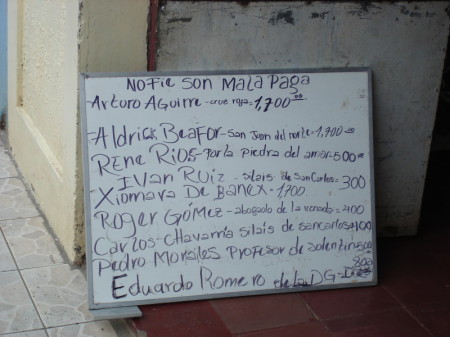 NO Fie SON MaLa PaGa
Arturo Aguirre - cruz roja = 1,700.00
ALdrick BeaFor - san Juan del norte = 1,700.00
Rene Rios - Por la piedra del amor = 500.00
IVan RUiz - silais de San Carlos = 300
Xiomara De Banex - 1,700
Roger Gómez - abogado de la = 400
Carlos - Chavarria silais de sancarlos 400
Pedro - Morales Profesor de solentin 500
800
Eduardo Romero de La DG -